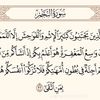 سُورَةُ النَّجْمِ
الَّذِينَ يَجْتَنِبُونَ كَبَٰٓئِرَ الْإِثْمِ وَالْفَوَٰحِشَ إِلَّا اللَّمَمَ
وَٰسِعُ الْمَغْفِرَةِ هُوَ أَعْلَمُ بِكُمْ إِذْ أَنشَأَكُم مِّنَ
أَجِنَّةٌ فِي بُطُونِ أُمَّهَٰتِكُمْ فَلَا تُزَكُّوٓا أَنفُسَكُمْ هُوَ
بِمَنِ اتَّقَىٰٓ